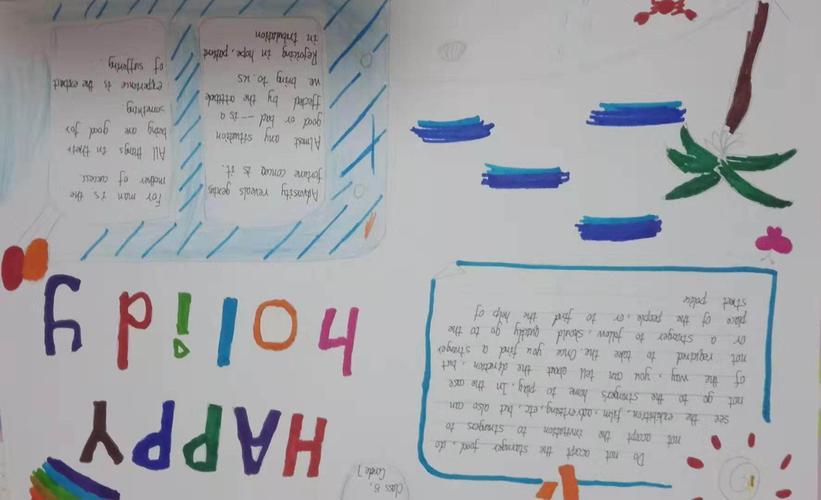 Class 8, Grade 1
HAPPY
holidy
Do not accept the starnger food, do
not accept the invitation to strangers to
see the exhibition, film, advertising, etc, but also can
not go to the stranger's home to play. In the case
of the way, you can tell about the direction, but
not required to take the. Once you find a stranger
or a stranger to follow, should quickly go to the
place of the people, or to find the help of
street police
Adversity reveals genius
fortune it.
Almost any situation
good or bad — is a
ffected by the attitude
we bring to us.
Rejoicing in hope, patient
in tribulation
For man is the
mother of success.
All things in their
being are good for
something.
experience is the extract
of suffering.